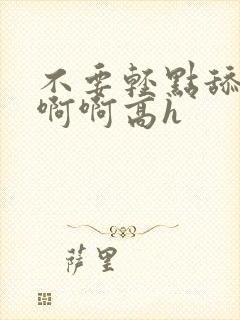 不要輕點舔
啊啊高h
萨里